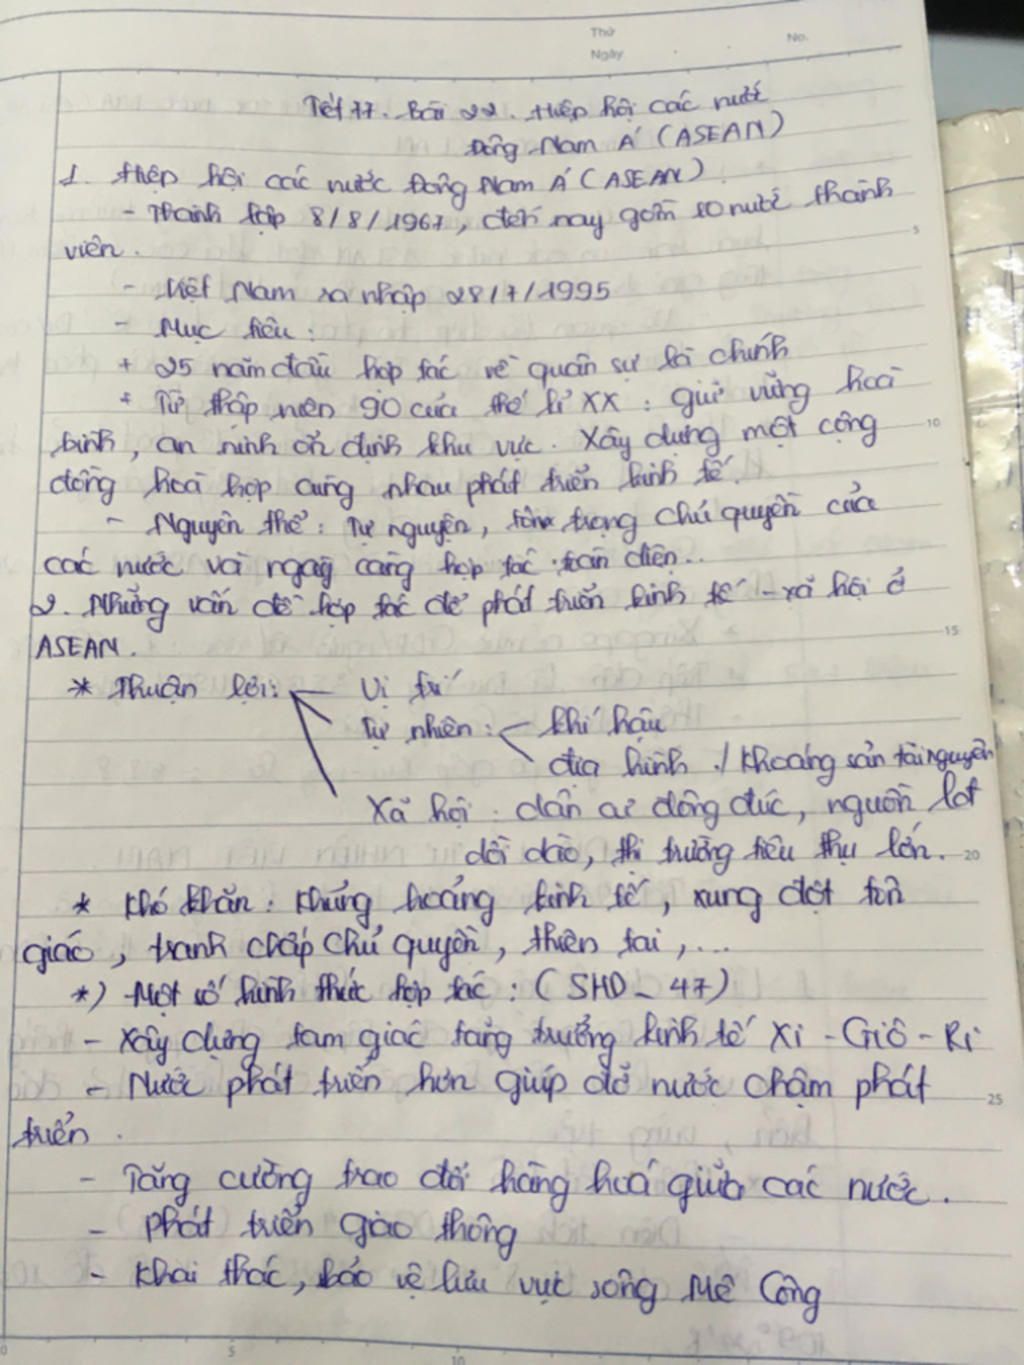 Thứ
Ngày
No.
Tiết 77. Bài 22. Hiệp hội các nước
Đông Nam Á (ASEAN)
1. Hiệp hội các nước Đông Nam Á (ASEAN)
- Thành lập 8/8/1967, đến nay gồm 10 nước thành
viên.
- Việt Nam ra nhập 28/7/1995
- Mục tiêu:
+ 25 năm đầu hợp tác về quân sự là chính
+ Từ thập niên 90 của thế kỉ XX: giữ vững hoà
bình, an ninh ổn định khu vực. Xây dựng một cộng
đồng hoà hợp cùng nhau phát triển kinh tế.
- Nguyên thể: Tự nguyện, tôn trọng chủ quyền của
các nước và ngày càng hợp tác toàn diện..
2. Những vấn đề hợp tác để phát triển kinh tế - xã hội ở
ASEAN.
* Thuận lợi: Vị trí
Tự nhiên: khí hậu
địa hình ./ khoáng sản tài nguyên
Xã hội: dân cư đông đúc, nguồn lđ
dồi dào, thị trường tiêu thụ lớn.
* Khó khăn: Khủng hoảng kinh tế, xung đột tôn
giáo, tranh chấp chủ quyền, thiên tai,...
*) Một số hình thức hợp tác: (SHD - 47)
- Xây dựng tam giác tăng trưởng kinh tế Xi - Giô - Ri
- Nước phát triển hơn giúp đỡ nước chậm phát
triển.
- Tăng cường trao đổi hàng hoá giữa các nước.
- Phát triển giao thông
- Khai thác, bảo vệ lưu vực sông Mê Công
5
10
15
20
25
0
5
10